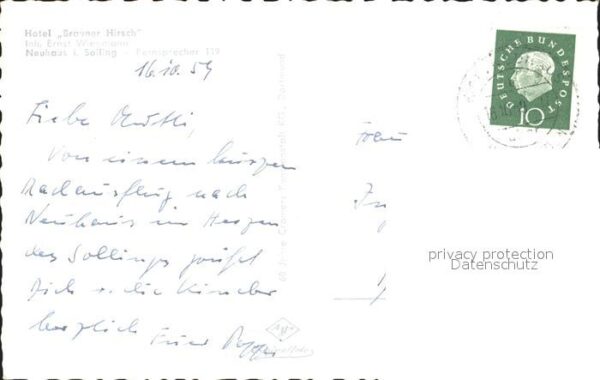 Hotel „Brauner Hirsch"
Inh. Ernst Wiegmann
Neuhaus i. Solling - Fernsprecher 119
16.10.59
Liebe Mutti,
Von einem kurzen
Radausflug nach
Neuhaus im Herzen
des Sollings grüßt
Dich u. die Kinder
herzlich Euer
Frau
DEUTSCHE BUNDESPOST
10
60 Jahre Cramers Kunstanstalt KG., Dortmund
privacy protection
Datenschutz
Agfa